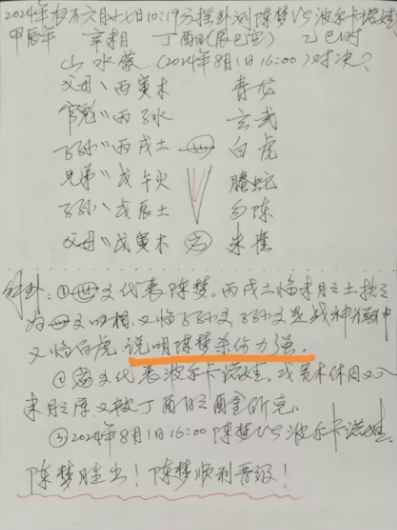 2024年农历六月廿七日10:19分摇卦测陈梦VS波尔卡诺娃
甲辰年 辛未月 丁酉日(辰巳空) 乙巳时
山水蒙 (2024年8月1日16:00)对决?
父母〃丙寅木 青龙
官鬼〃丙子水 玄武
子孙〃丙戌土 世 白虎
兄弟〃戊午火 腾蛇
子孙、戊辰土 勾陈
父母〃戊寅木 应 朱雀
解卦:①世爻代表陈梦。丙戌土临未月之土扶之
为世爻旺相,又临子孙爻,子孙爻是战神福神
又临白虎,说明陈梦杀伤力强。
②应爻代表波尔卡诺娃,戊寅木休囚又入
未月之库又被丁酉日之酉金所克。
③2024年8月1日16:00陈梦VS波尔卡诺娃,
陈梦胜出!陈梦顺利晋级!